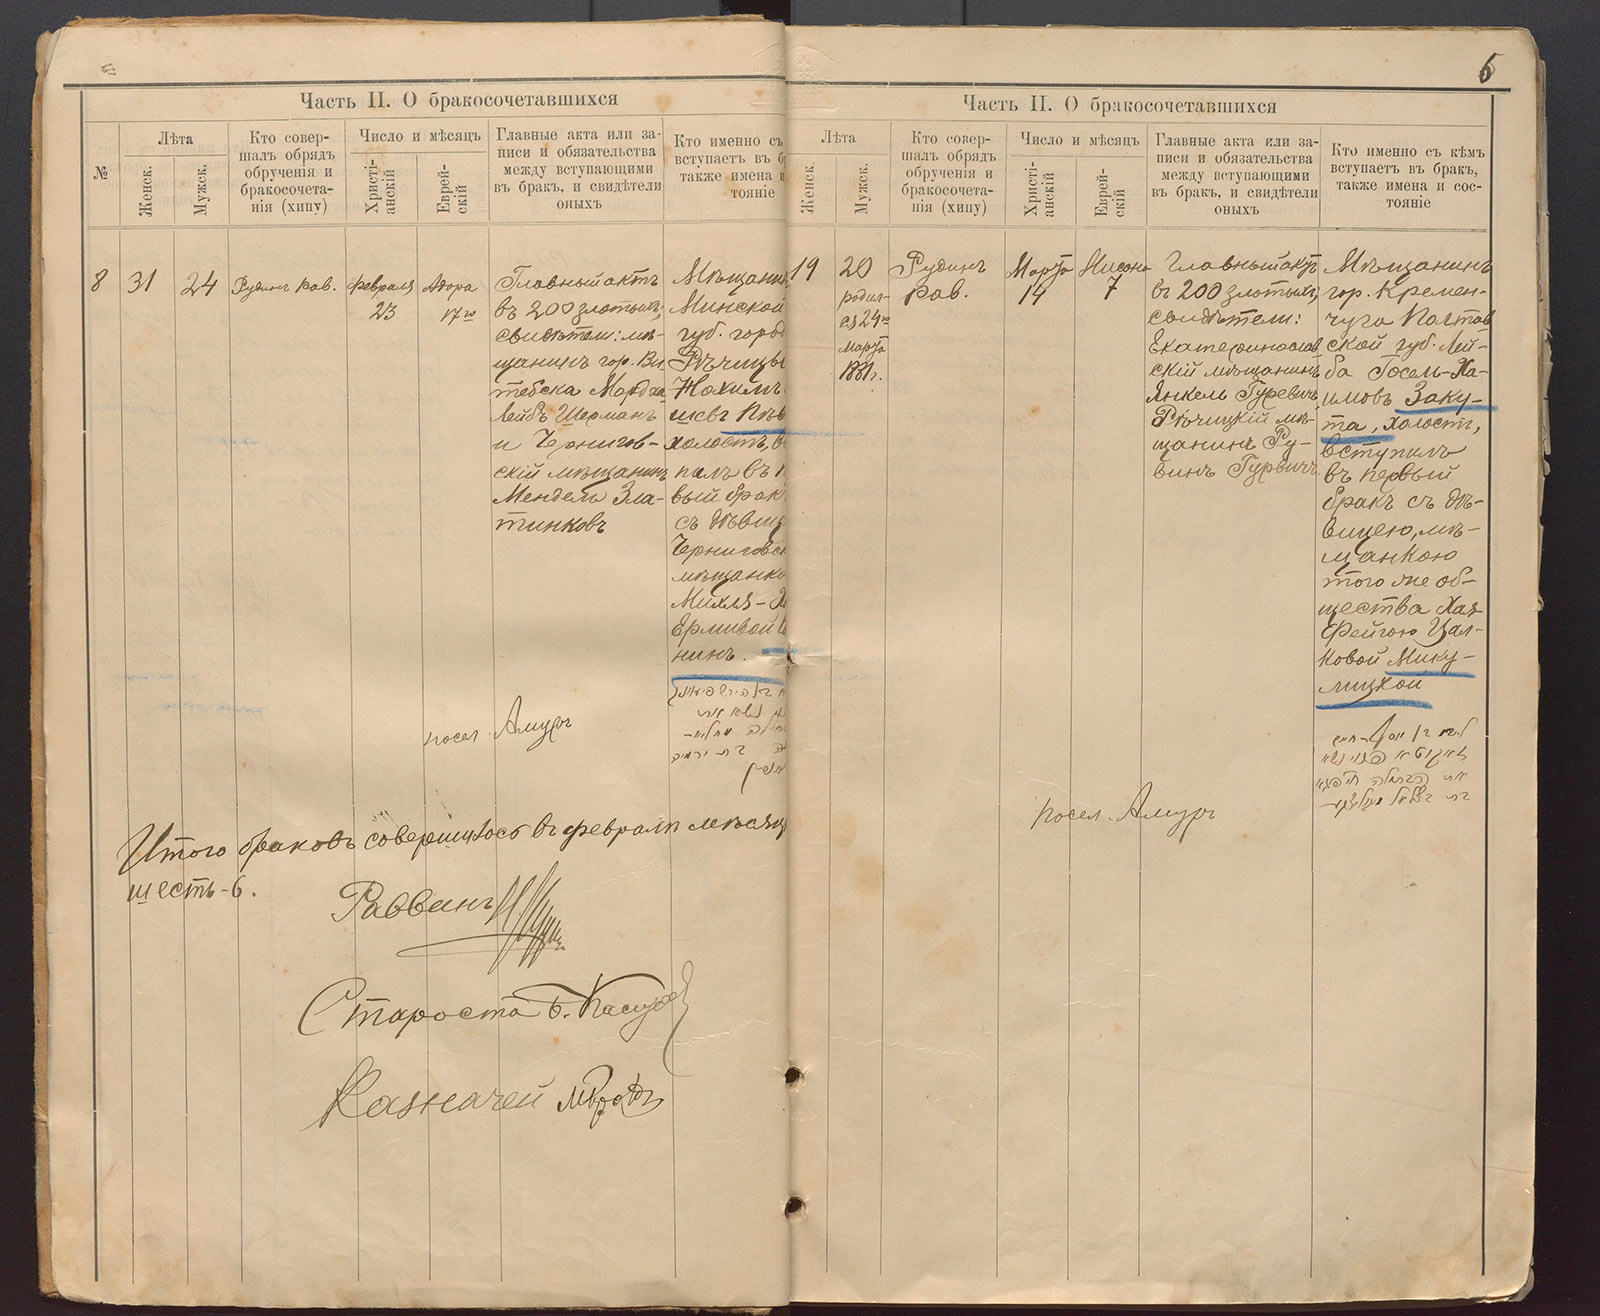 Часть II. О бракосочетавшихся
№
Лѣта
Женск.
Мужск.
Кто совер-
шалъ обрядъ
обрученія и
бракосочета-
нія (хипу)
Число и мѣсяцъ
Христі-
анскій
Еврей-
скій
Главные акта или за-
писи и обязательства
между вступающими
въ бракъ, и свидѣтели
оныхъ
Кто именно съ
вступаетъ въ б
также имена и
тояніе
8
31
24
Рудинъ Рав.
Февраля
23
Адора
17го
Главный актъ
въ 200 злотыхъ;
свидѣтели: мѣ-
щанинъ гор. Ви
тебска Мордха
Лейбъ Шерманъ
и Чернигов-
скій мѣщанинъ
Мендель Зла-
тинковъ
Мѣщанин
Минской
губ. город
Рѣчицы
Нохимъ
холостъ, в
палъ въ п
вый бракъ
съ дѣвиц
Черниговск
мѣщанко
Михля-Х
нинъ.
посел. Амуръ
Итого браковъ совершилось въ феврали мѣсяц
шесть-6.
Раввинъ
Староста Б.
Казначей
6
Часть II. О бракосочетавшихся
Лѣта
Женск.
Мужск.
Кто совер-
шалъ обрядъ
обрученія и
бракосочета-
нія (хипу)
Число и мѣсяцъ
Христі-
анскій
Еврей-
скій
Главные акта или за-
писи и обязательства
между вступающими
въ бракъ, и свидѣтели
оныхъ
Кто именно съ кѣмъ
вступаетъ въ бракъ,
также имена и сос-
тояніе
19
20
родил-
ся 24го
Марта
1881г.
Рудинъ
Рав.
Марта
14
Нисона
7
Главный актъ
въ 200 злотыхъ;
свидѣтели:
Екатеринослав
скій мѣщанинъ
Янкель Гуревичъ,
Рѣчицкій мѣ-
щанинъ Ру-
винъ Гурвичъ
Мѣщанинъ
гор. Кремен-
чуга Полтав
ской губ. Лей-
ба Іосель-Ха-
имовъ Заку-
та, холостъ,
вступилъ
въ первый
бракъ съ дѣ-
вицею, мѣ-
щанкою
того же об-
щества Хая-
Фейгою Цал-
ковой Мику-
лицкой
посел. Амуръ